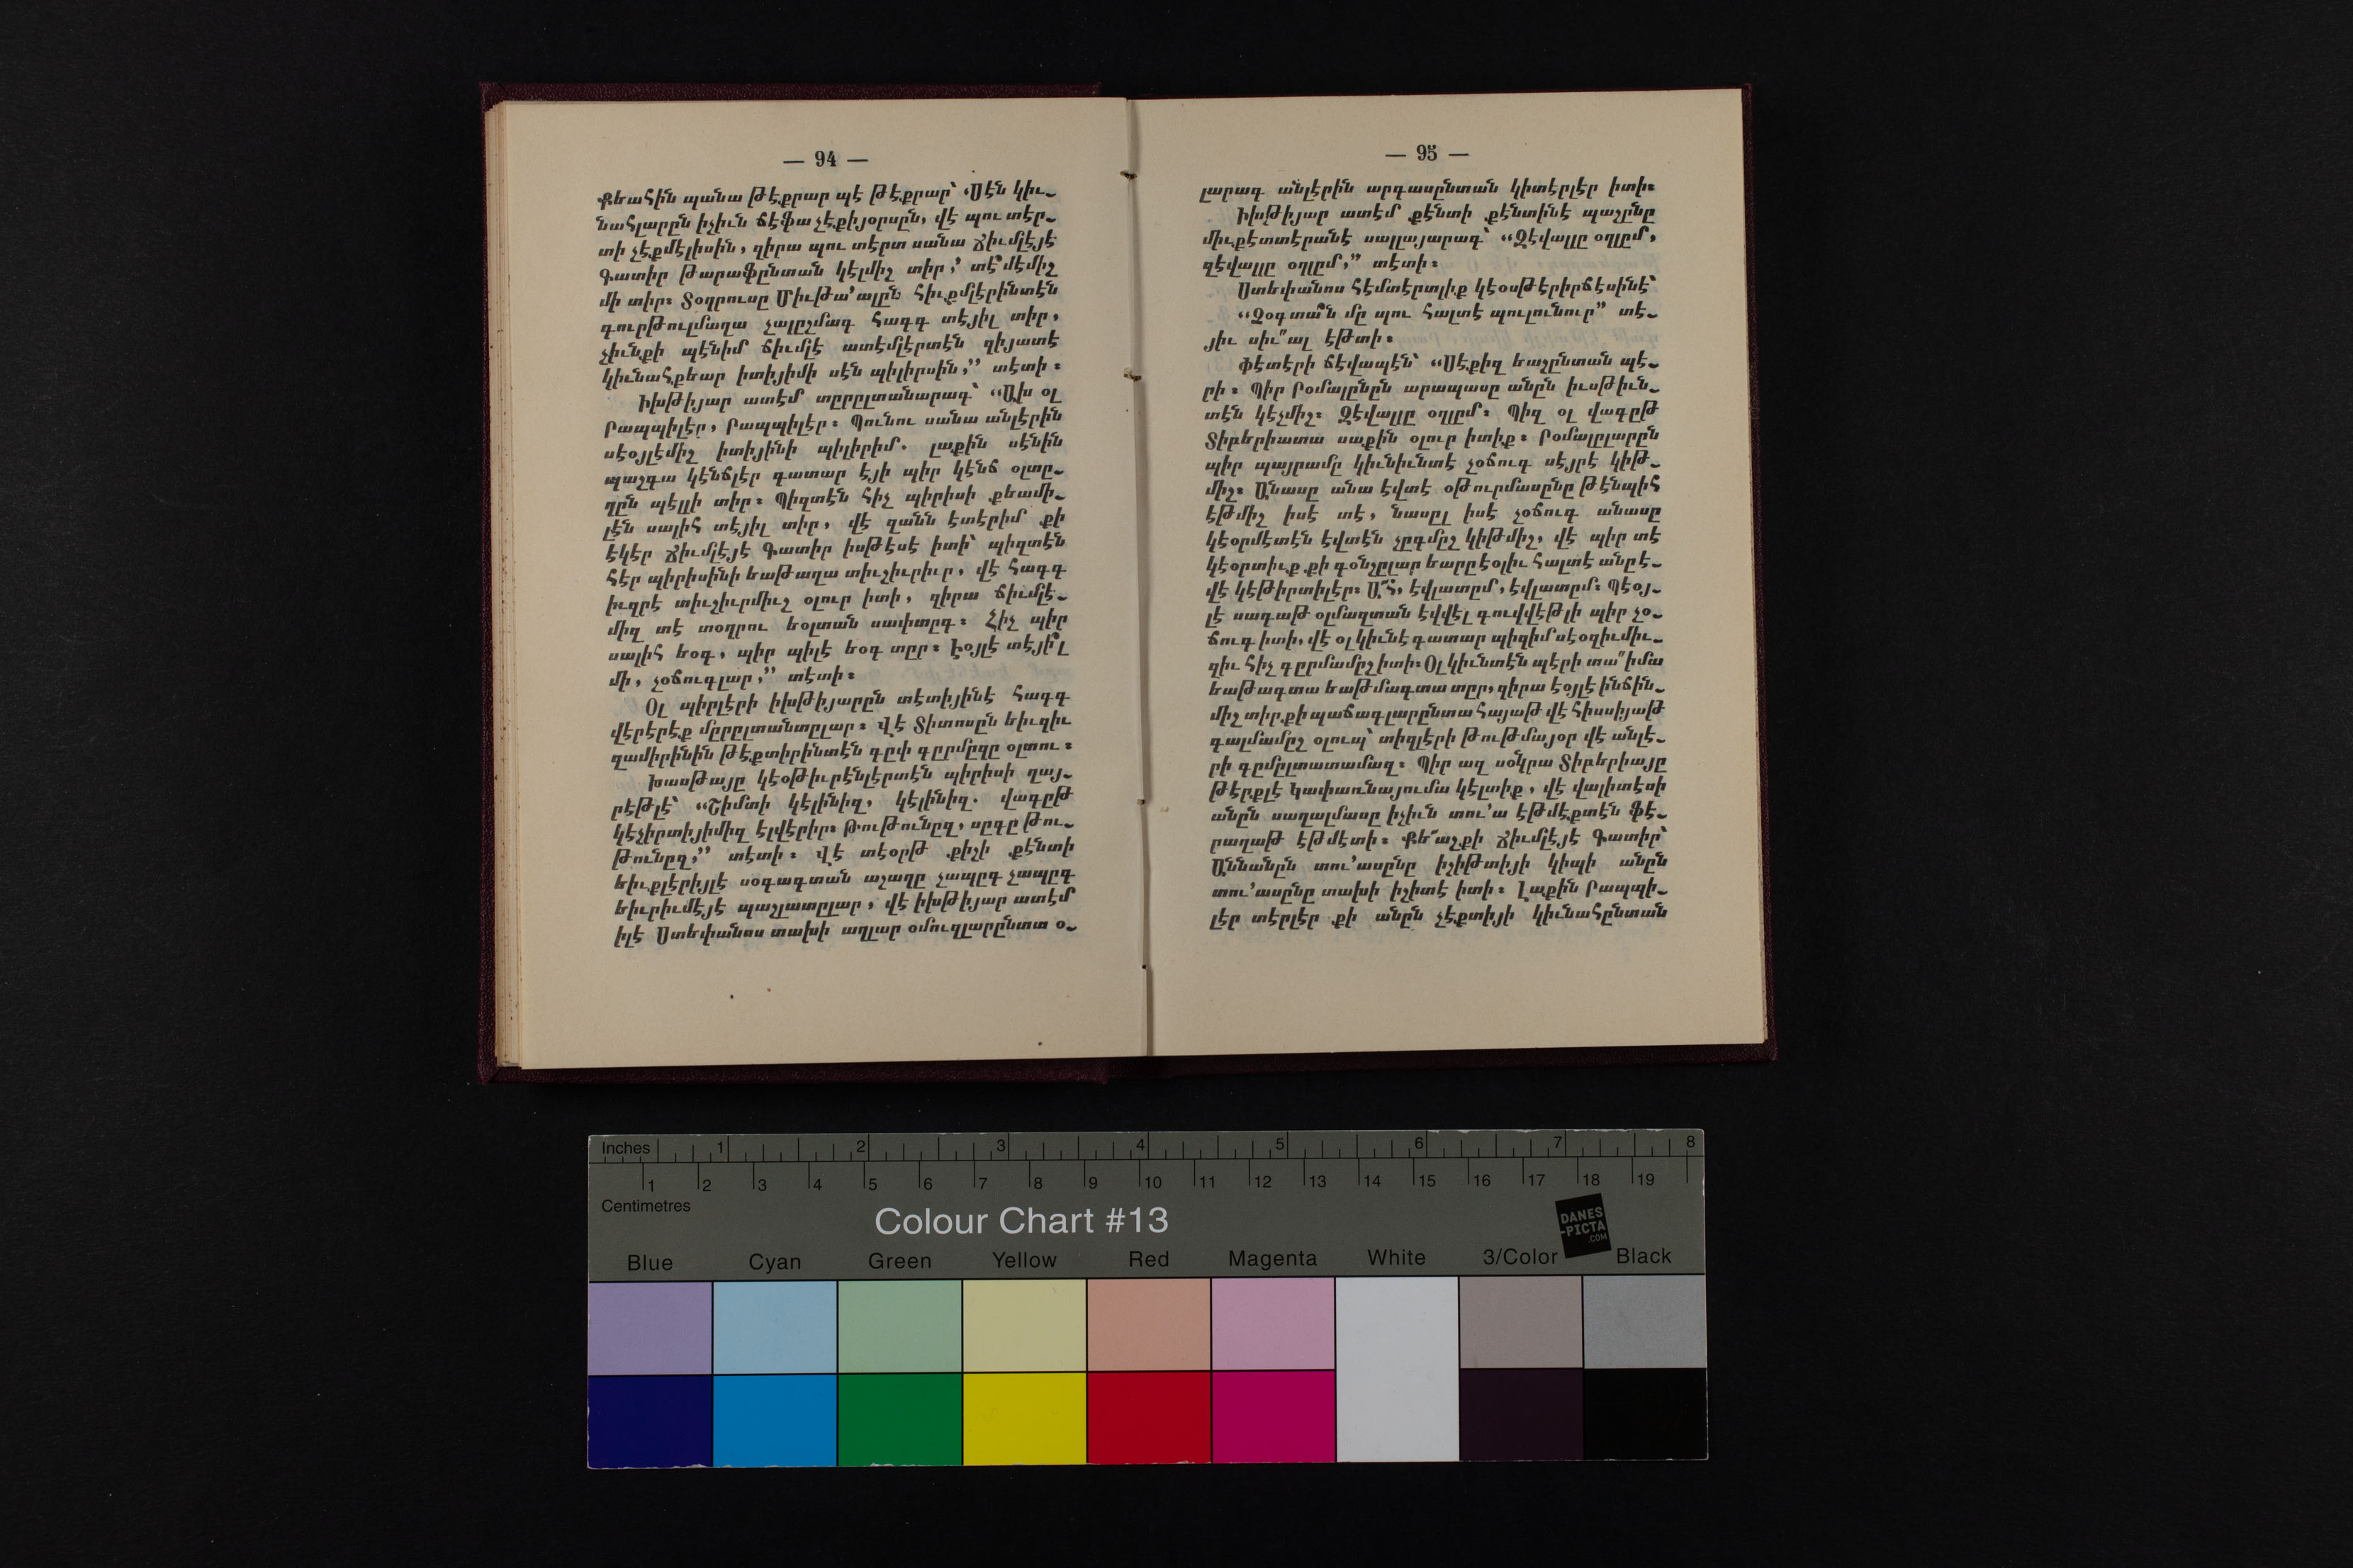 — 94 —
Քեահին պանա թէքրար պէ թէքրար՝ ‘Սէն կիւ֊
նահլարըն իչիւն ճէֆա չէքիյօրսըն, վէ պու տէր֊
տի չէքմէլիսին, զիրա պու տէրտ սանա ճիւմլէյէ
Գատիր թարաֆընտան կէլմիշ տիր,’ տէ՞մէմիշ
մի տիր։ Տօղրուսը Միւթա՚ալըն հիւքմլէրինտէն
գուրթուլմաղա չալըշմագ հագգ տէյիլ տիր,
չիւնքի պէնիմ ճիւմլէ ատէմլէրտէն զիյատէ
կիւնահքեար իտիյիմի սէն պիլիրսին,” տէտի։
Իխթիյար ատէմ տըրըլտանարագ՝ “Ախ օլ
Րապպիլէր, Րապպիլէր։ Պունու սանա անլէրին
սէօյլէմիշ իտիյինի պիլիրիմ. լաքին սէնին
պաշգա կէնճլէր գատար էյի պիր կէնճ օլտը֊
ղըն պէլլի տիր։ Պիզտէն հիչ պիրիսի քեամի֊
լէն սալիհ տէյիլ տիր, վէ զանն էտէրիմ քի
էկէր ճիւմլէյէ Գատիր իսթէսէ իտի՝ պիզտէն
հէր պիրիսինի եաթաղա տիւշիւրիւր, վէ հագգ
իւզրէ տիւշիւրմիւշ օլուր իտի, զիրա ճիւմլէ֊
միզ տէ տօղրու եօլտան սափտըգ։ Հիչ պիր
սալիհ եօգ, պիր պիլէ եօգ տըր։ Էօյլէ տէյի՞լ
մի, չօճուգլար,” տէտի։
Օլ պիրլէրի իխթիյարըն տէտիյինէ հագգ
վէրէրէք մըրըլտանտըլար։ Վէ Տիտոսըն եիւզիւ
զամիրինին թէքտիրինտէն գըփ գըրմըզը օլտու։
Խասթայը կէօթիւրէնլէրտէն պիրիսի ղայ֊
րէթլէ՝ “Շիմտի կէլինիզ, կէլինիզ. վագըթ
կէչիրտիյիմիզ էլվէրիր։ Թութունըզ, սըգը թու֊
թունըզ,” տէտի։ Վէ տէօրթ քիշի քէնտի
եիւքլէրիյլէ սօգագտան աշաղը չապըգ չապըգ
եիւրիւմէյէ պաշլատըլար, վէ իխթիյար ատէմ
իլէ Ստեփանոս տախի աղլար օմուզլարընտա օ֊
— 95 —
լարագ անլէրին արգասընտան կիտէրլէր իտի։
Իխթիյար ատէմ քէնտի քէնտինէ պաշընը
միւքէտտէրանէ սալլայարագ՝ “Զէվալլը օղլըմ,
զէվալլը օղլըմ,” տէտի։
Ստեփանոս հէմտէրտլիք կէօսթէրիրճէսինէ՝
“Չօգտա՞ն մը պու հալտէ պուլունուր” տէ֊
յիւ սիւ՚ալ էթտի։
Փէտէրի ճէվապէն՝ “Սէքիզ եաշընտան պէ֊
րի։ Պիր Րօմալընըն արապասը անըն իւսթիւն֊
տէն կէչմիշ։ Զէվալլը օղլըմ։ Պիզ օլ վագըթ
Տիբերիատա սաքին օլուր իտիք։ Րօմալըլարըն
պիր պայրամը կիւնիւնտէ չօճուգ սէյրէ կիթ֊
միշ։ Անասը անա էվտէ օթուրմասընը թէնպիհ
էթմիշ իսէ տէ, նասըլ իսէ չօճուգ անասը
կէօրմէտէն էվտէն չըգմըշ կիթմիշ, վէ պիր տէ
կէօրտիւք քի գօնշըլար եարը էօլիւ հալտէ անը է֊
վէ կէթիրտիլէր։ Ա՜հ, էվլատըմ, էվլատըմ։ Պէօյ֊
լէ սագաթ օլմազտան էվվէլ գուվվէթլի պիր չօ֊
ճուգ իտի, վէ օլ կիւնէ գատար պիզիմ սէօզիւմիւ֊
զիւ հիչ գըրմամըշ իտի։ Օլ կիւնտէն պէրի տա՚իմա
եաթագտա եաթմագտա տըր, զիրա էօյլէ ինճին֊
միշ տիր քի պաճագլարընտա հայաթ վէ հիսսիյաթ
գալմամըշ օլուպ՝ տիզլէրի թութմայօր վէ անլէ֊
րի գըմըլտատամազ։ Պիր ազ սօնկրա Տիբերիայը
թէրքլէ Կափառնայումա կէլտիք, վէ վալիտէսի
անըն սաղալմասը իչիւն տու՚ա էթմէքտէն ֆէ֊
րաղաթ էթմէտի։ Քե՜աշքի ճիւմլէյէ Գատիր՝
Աննանըն տու՚ասընը իշիթտիյի կիպի անըն
տու՚ասընը տախի իշիտէ իտի։ Լաքին Րապպի֊
լէր տէրլէր քի անըն չէքտիյի կիւնահընտան
Inches 1 2 3 4 5 6 7 8
1 2 3 4 5 6 7 8 9 10 11 12 13 14 15 16 17 18 19
Centimetres
Colour Chart #13
DANES
-PICTA
.COM
Blue Cyan Green Yellow Red Magenta White 3/Color Black